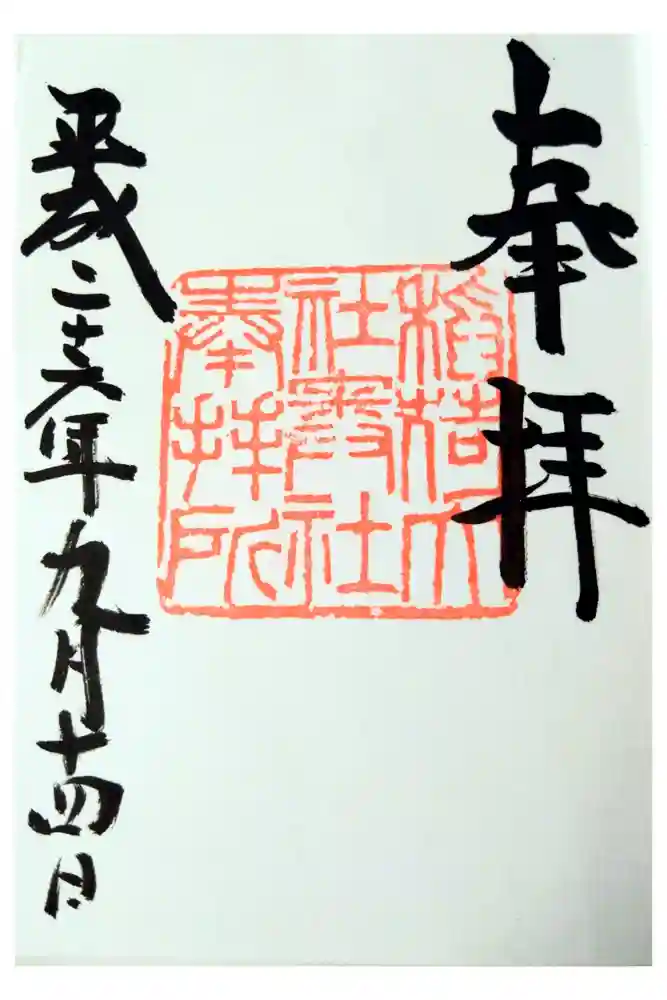 奉拝
稲荷大
社奥社
奉拝所
平成二十六年九月十四日